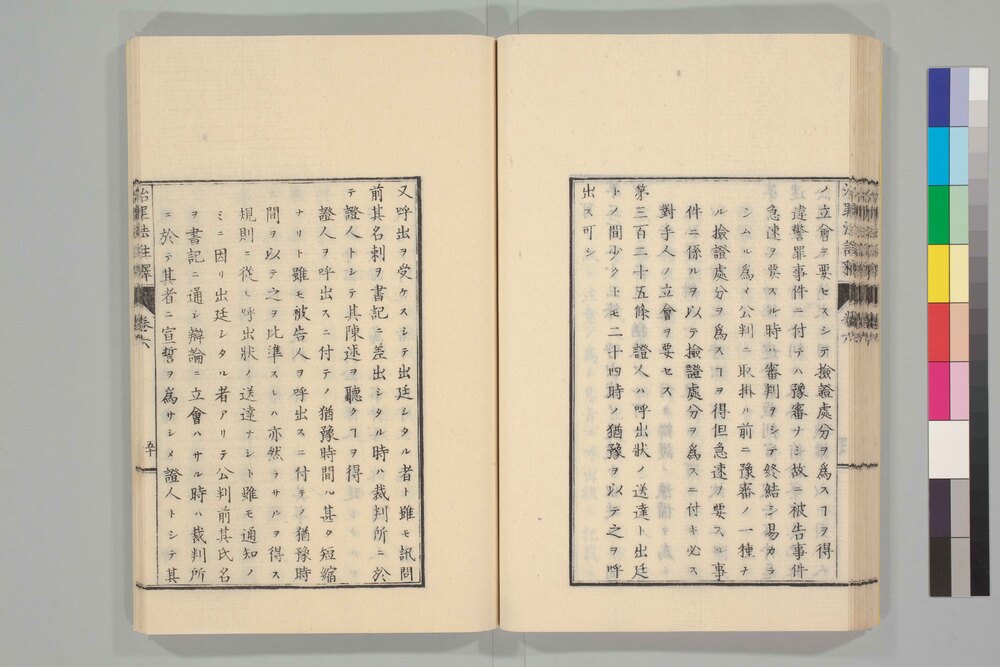 ノ立會ヲ要セスシテ撿證處分ヲ爲スヿヲ得
違警罪事件ニ付テハ豫審ナシ故ニ被告事件
急速ヲ要スル時ハ審判ヲシテ終結シ易カラ
シムル爲メ公判ニ取掛ル前ニ豫審ノ一種ナ
ル撿證處分ヲ爲スヿヲ得但急速ヲ要スル事
件ニ係ルヲ以テ撿證處分ヲ爲スニ付キ必ス
對手人ノ立會ヲ要セス
第三百二十五條證人ハ呼出狀ノ送達ト出廷
トノ間少クトモ二十四時ノ猶豫ヲ以テ之ヲ呼
出ス可シ
又呼出ヲ受ケスシテ出廷シタル者ト雖モ訊問
前其名刺ヲ書記ニ差出シタル時ハ裁判所ニ於
テ證人トシテ其陳述ヲ聽クヿヲ得
證人ヲ呼出スニ付テノ猶豫時間ハ甚タ短縮
ナリト雖モ被告人ヲ呼出スニ付テノ猶豫時
間ヲ以テ之ヲ比準スレハ亦然ラサルヲ得ス
規則ニ從ヒ呼出狀ノ送達ナシト雖モ通知ノ
ミニ因リ出廷シタル者アリテ公判前其氏名
ヲ書記ニ通シ辯論ニ立會ハサル時ハ裁判所
ニ於テ其者ニ宣誓ヲ爲サシメ證人トシテ其
治罪法註釋
卷六
五十